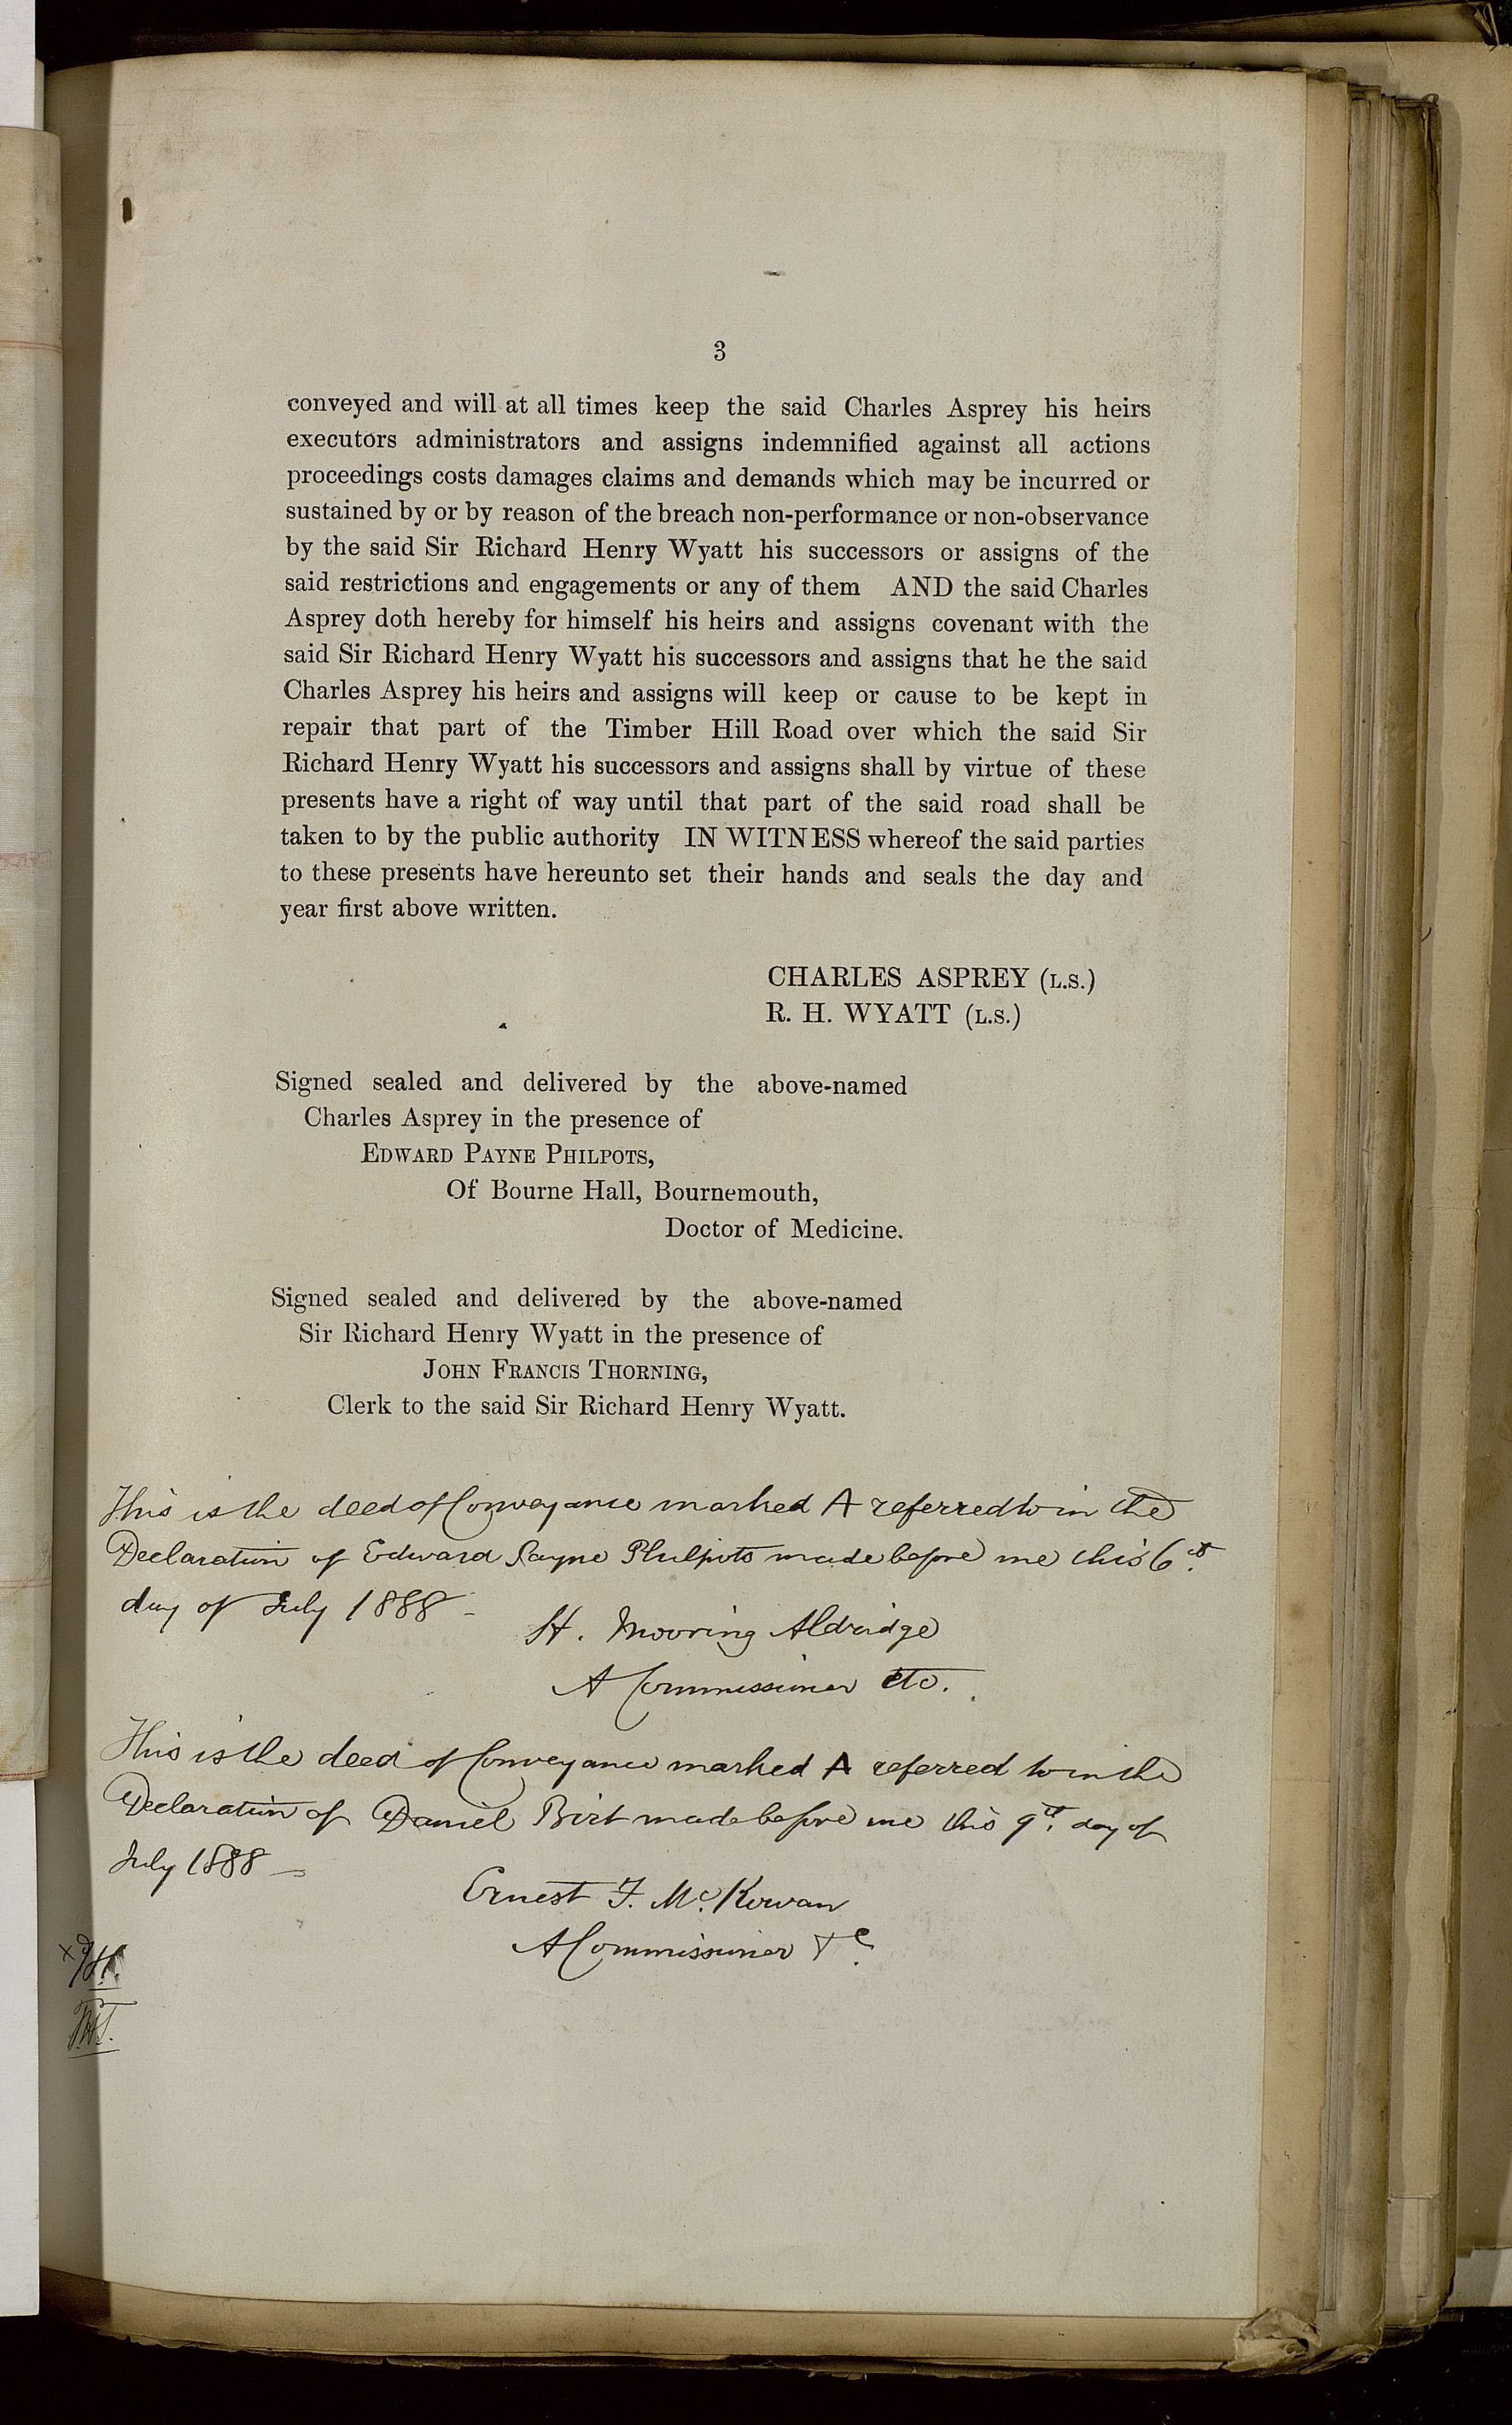 3
conveyed and will at all times keep the said Charles Asprey his heirs
executors administrators and assigns indemnified against all actions
proceedings costs damages claims and demands which may be incurred or
sustained by or by reason of the breach non-performance or non-observance
by the said Sir Richard Henry Wyatt his successors or assigns of the
said restrictions and engagements or any of them AND the said Charles
Asprey doth hereby for himself his heirs and assigns covenant with the
said Sir Richard Henry Wyatt his successors and assigns that he the said
Charles Asprey his heirs and assigns will keep or cause to be kept in
repair that part of the Timber Hill Road over which the said Sir
Richard Henry Wyatt his successors and assigns shall by virtue of these
presents have a right of way until that part of the said road shall be
taken to by the public authority IN WITNESS whereof the said parties
to these presents have hereunto set their hands and seals the day and
year first above written.
CHARLES ASPREY (L.S.)
R. H. WYATT (L.S.)
Signed sealed and delivered by the above-named
Charles Asprey in the presence of
EDWARD PAYNE PHILPOTS,
Of Bourne Hall, Bournemouth,
Doctor of Medicine.
Signed sealed and delivered by the above-named
Sir Richard Henry Wyatt in the presence of
JOHN FRANCIS THORNING,
Clerk to the said Sir Richard Henry Wyatt.
This is the deed of Conveyance marked A referred to in the
Declaration of Edward Payne Philpots made before me this 6th
day of July 1888 -
H. Mooring Aldridge
A Commissioner etc.
This is the deed of Conveyance marked A referred to in the
Declaration of Daniel Birt made before me this 9th day of
July 1888 —
Ernest F. McKowan
A Commissioner &c